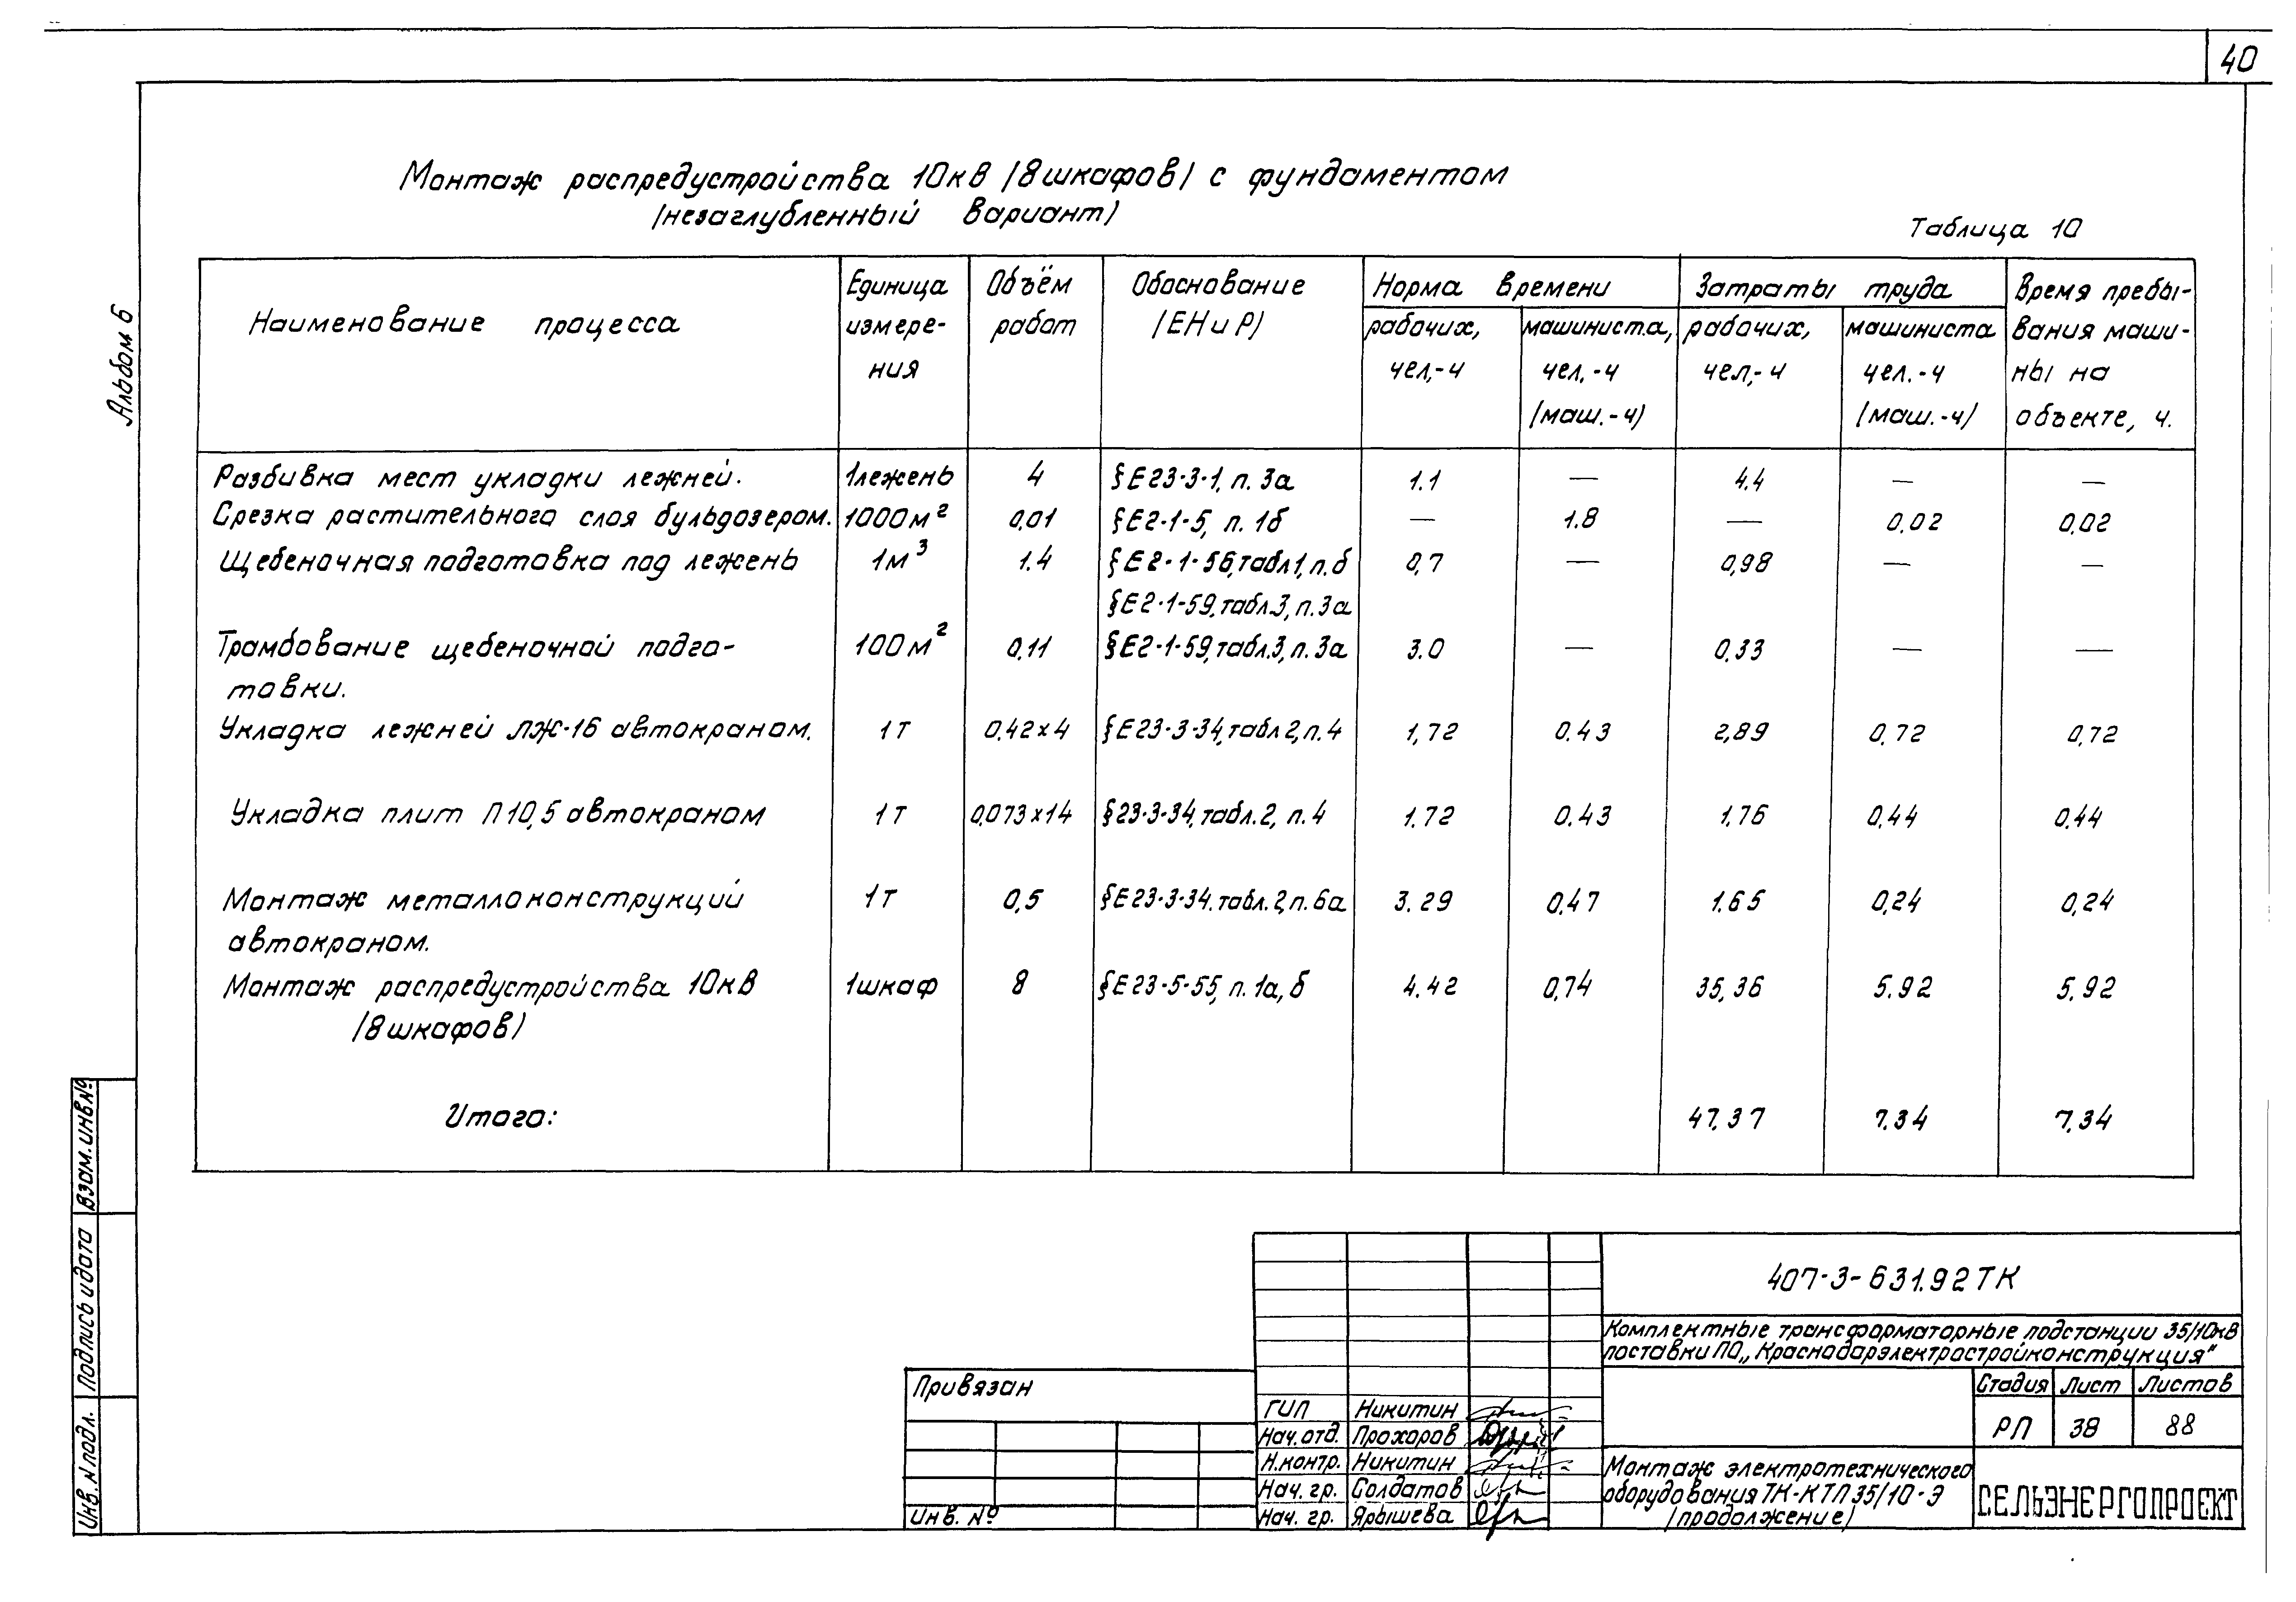 40
Альбом 6
Монтаж распредустройства 10кВ /8шкафов/ с фундаментом
/незаглубленный вариант/
Таблица 10
Наименование процесса
Единица измере- ния
Объём работ
Обоснование /ЕНиР/
Норма времени
рабочих, чел,-ч
машиниста, чел.-ч /маш.-ч/
Затраты труда
рабочих, чел,-ч
машиниста чел.-ч /маш.-ч/
Время пребы- вания маши- ны на объекте, ч.
Разбивка мест укладки лежней. 1лежень 4 §Е23-3-1, п. 3а 1.1 — 4.4 — —
Срезка растительного слоя бульдозером. 1000м² 0,01 §Е2-1-5, п. 1б — 1.8 — 0,02 0,02
Щебеночная подготовка под лежень 1м³ 1.4 §Е2-1-56,табл1,п.б 0,7 — 0,98 — —
§Е2-1-59,табл.3, п.3а
Трамбование щебеночной подго- 100м² 0,11 §Е2-1-59,табл.3, п.3а 3.0 — 0,33 — —
товки.
Укладка лежней ЛЖ-16 автокраном. 1т 0,42х4 §Е23-3-34,табл2,п.4 1,72 0.43 2,89 0,72 0,72
Укладка плит П10,5 автокраном 1т 0,073х14 §23-3-34,табл.2, п.4 1.72 0.43 1,76 0,44 0.44
Монтаж металлоконструкций 1т 0,5 §Е23-3-34.табл.2,п.6а 3.29 0,47 1.65 0,24 0,24
автокраном.
Монтаж распредустройства 10кВ 1шкаф 8 §Е23-5-55, п.1а,б 4.42 0,74 35,36 5.92 5.92
/8шкафов/
Итого: 47.37 7.34 7.34
Взам.инв№
Подпись и дата
Инв.№подл.
407-3-631.92ТК
Комплектные трансформаторные подстанции 35/10кВ
поставки ПО„Краснодарэлектростройконструкция"
Стадия Лист Листов
РП 38 88
Привязан
Инв. №
ГИП Никитин
Нач.отд. Прохоров
Н.контр. Никитин
Нач. гр. Солдатов
Нач. гр. Ярышева
Монтаж электротехнического
оборудования ТК-КТП35/10-Э
/продолжение/
СЕЛЬЭНЕРГОПРОЕКТ